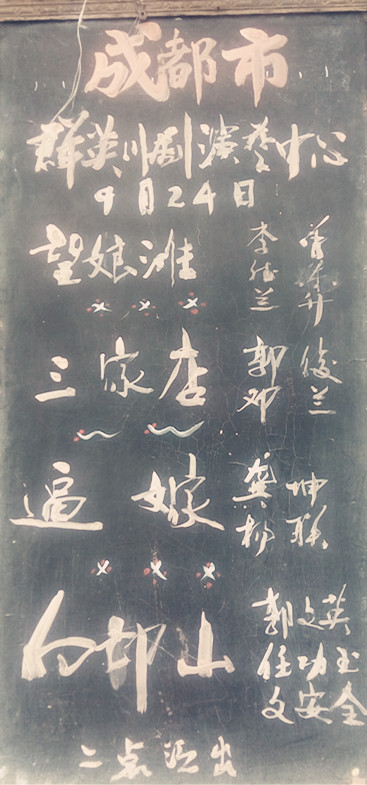 成都市
群英川剧演艺中心
9月24日
望娘滩 李 兰 曾荣升
三家店 郭俊
邓兰
逼嫁 龚坤
柳联
山 郭文英
任功玉
文安全
二点演出